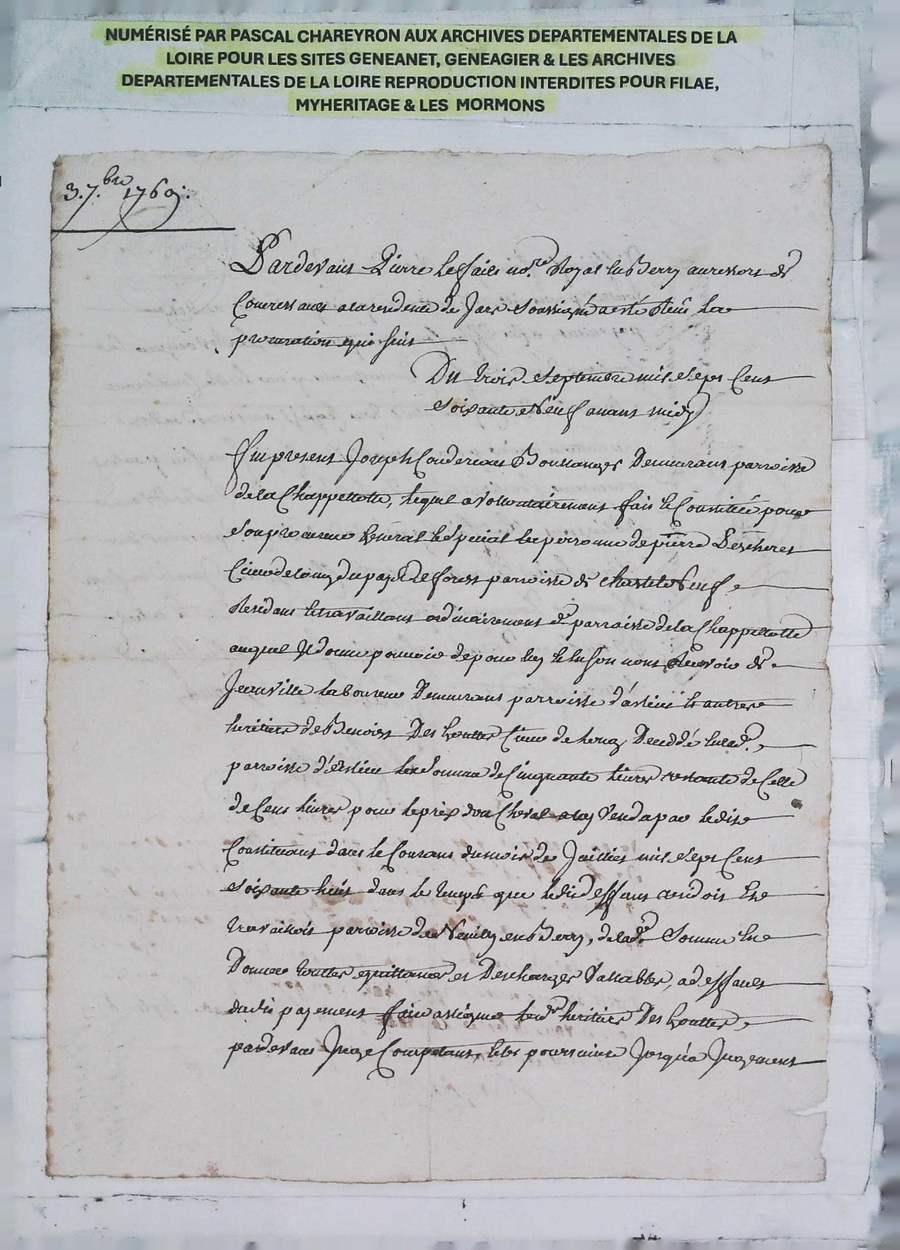 NUMÉRISÉ PAR PASCAL CHAREYRON AUX ARCHIVES DEPARTEMENTALES DE LA
LOIRE POUR LES SITES GENEANET, GENEAGIER & LES ARCHIVES
DEPARTEMENTALES DE LA LOIRE REPRODUCTION INTERDITES POUR FILAE,
MYHERITAGE & LES MORMONS
3. 7.bre 1769.
Pardevant Pierre no.re Royal en Berry au ressort de
a la residence de Jars soussigné a esté la
procuration qui suit
Du trois septembre mil sept Cent
soixante et Neuf avant midy
fut present Joseph Boullanger Demeurant parroisse
de la Chappelotte, lequel a vollontairement fait et Constitué pour
son procureur General et special la personne de pierre
de long du païs de forest parroisse de
Residant et travaillant ordinairement d. parroisse de la Chappelotte
auquel Il donne pouvoir de pour luy et en son nom Recevoir de
Jeanville laboureur Demeurant parroisse d' et autres
heritiers de Benoist Des houttes de long Deceddé en lad.
parroisse d' la somme de Cinquante livres restante de Celle
de Cent livres pour le prix d'un Cheval a luy vendu par ledit
Constituant dans le Courant du mois de Juillet mil sept Cent
soixante huit dans le temps que ledit deffunt
travailloit parroisse de Neuilly en Berry, de lad. somme En
Donner touttes quittances et Descharges Vallables, a deffaut
dudit payement faire assigner lesd. heritiers Des houttes,
pardevant Juge Competant, les poursuivre Jusqu'a Jugement